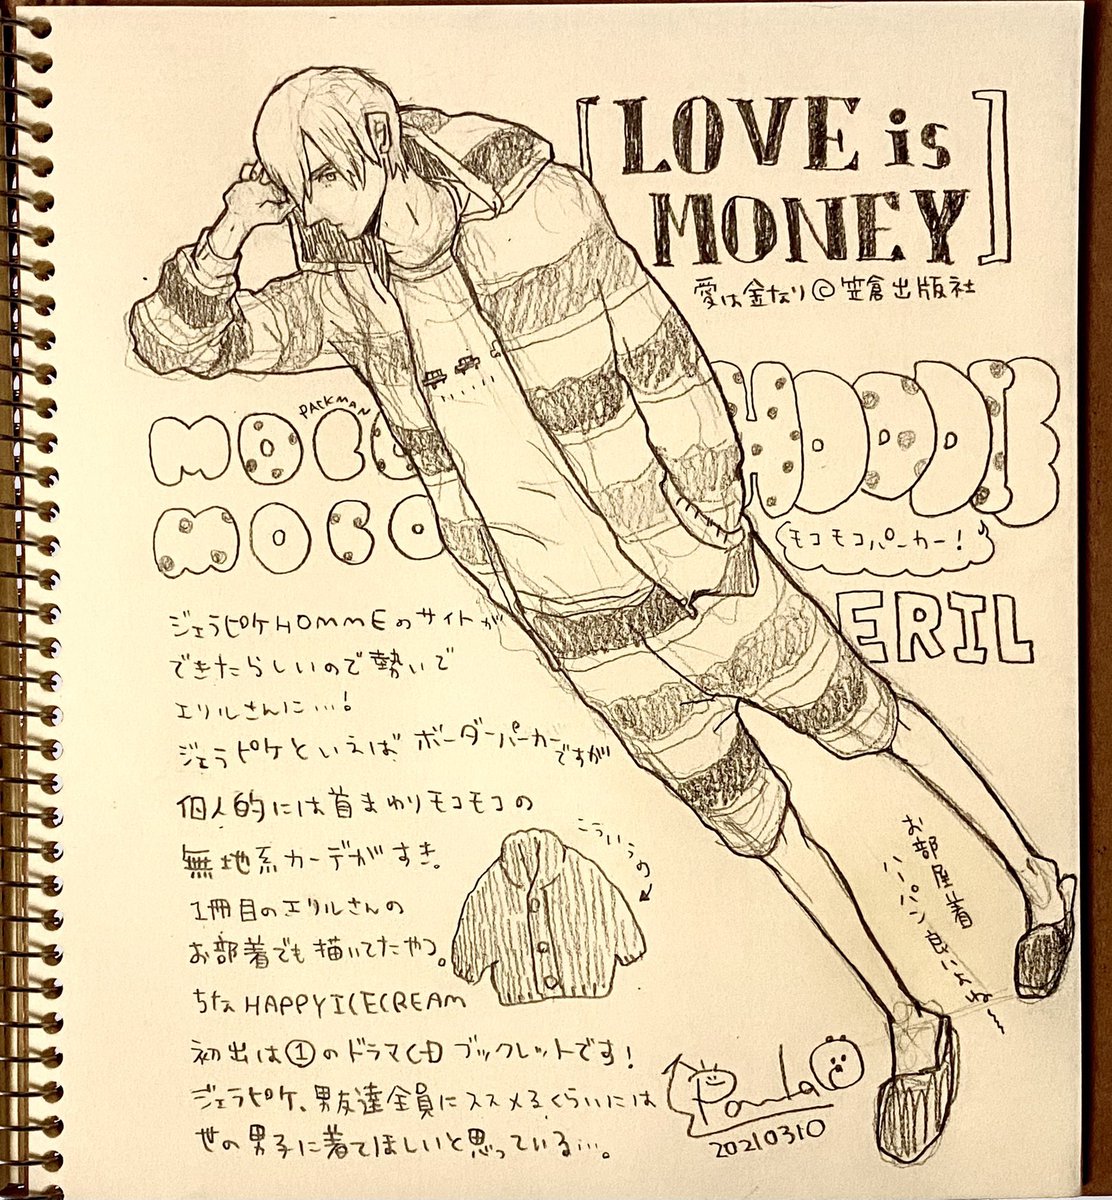 [LOVE is
MONEY]
愛は金なり©笠倉出版社
PACKMAN
MOCO
MOCO
HOODIE
モコモコパーカー!
ERIL
ジェラピケHOMMEのサイトが
できたらしいので勢いで
エリルさんに…!
ジェラピケといえばボーダーパーカーですが
個人的には首まわりモコモコの
無地系カーデがすき。
こういうの
1冊目のエリルさんの
お部着でも描いてたやつ。
ちなHAPPYICECREAM
初出は①のドラマCDブックレットです!
ジェラピケ、男友達全員にススメるくらいには
世の男子に着てほしいと思っている…。
お部屋着
ハーパン良いよね〜
20210310